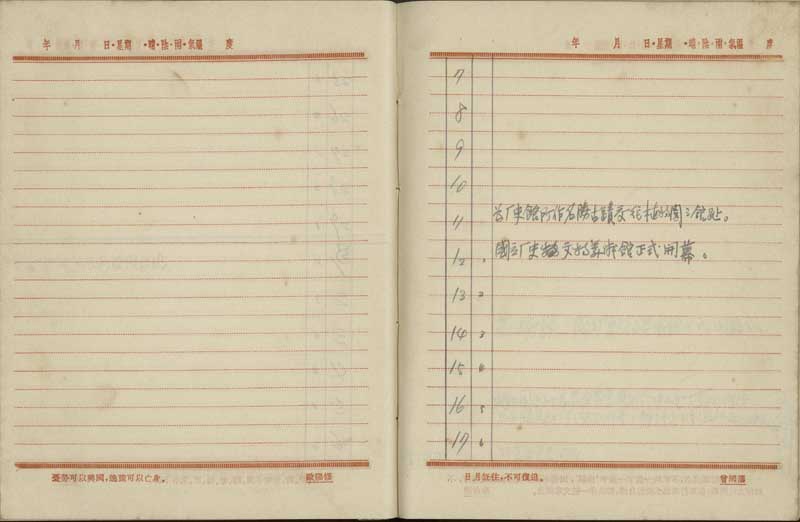 年 月 日·星期 ·晴·陰·雨·氣溫 度
憂勞可以興國,逸豫可以亡身。 歐陽修
年 月 日·星期 ·晴·陰·雨·氣溫 度
7
8
9
10
11 為厂史館所作名勝古蹟
12 國立厂史文物美術館正式開幕。
13 2
14 3
15 4
16 5
17 6
日月既往,不可復追。 曾國藩